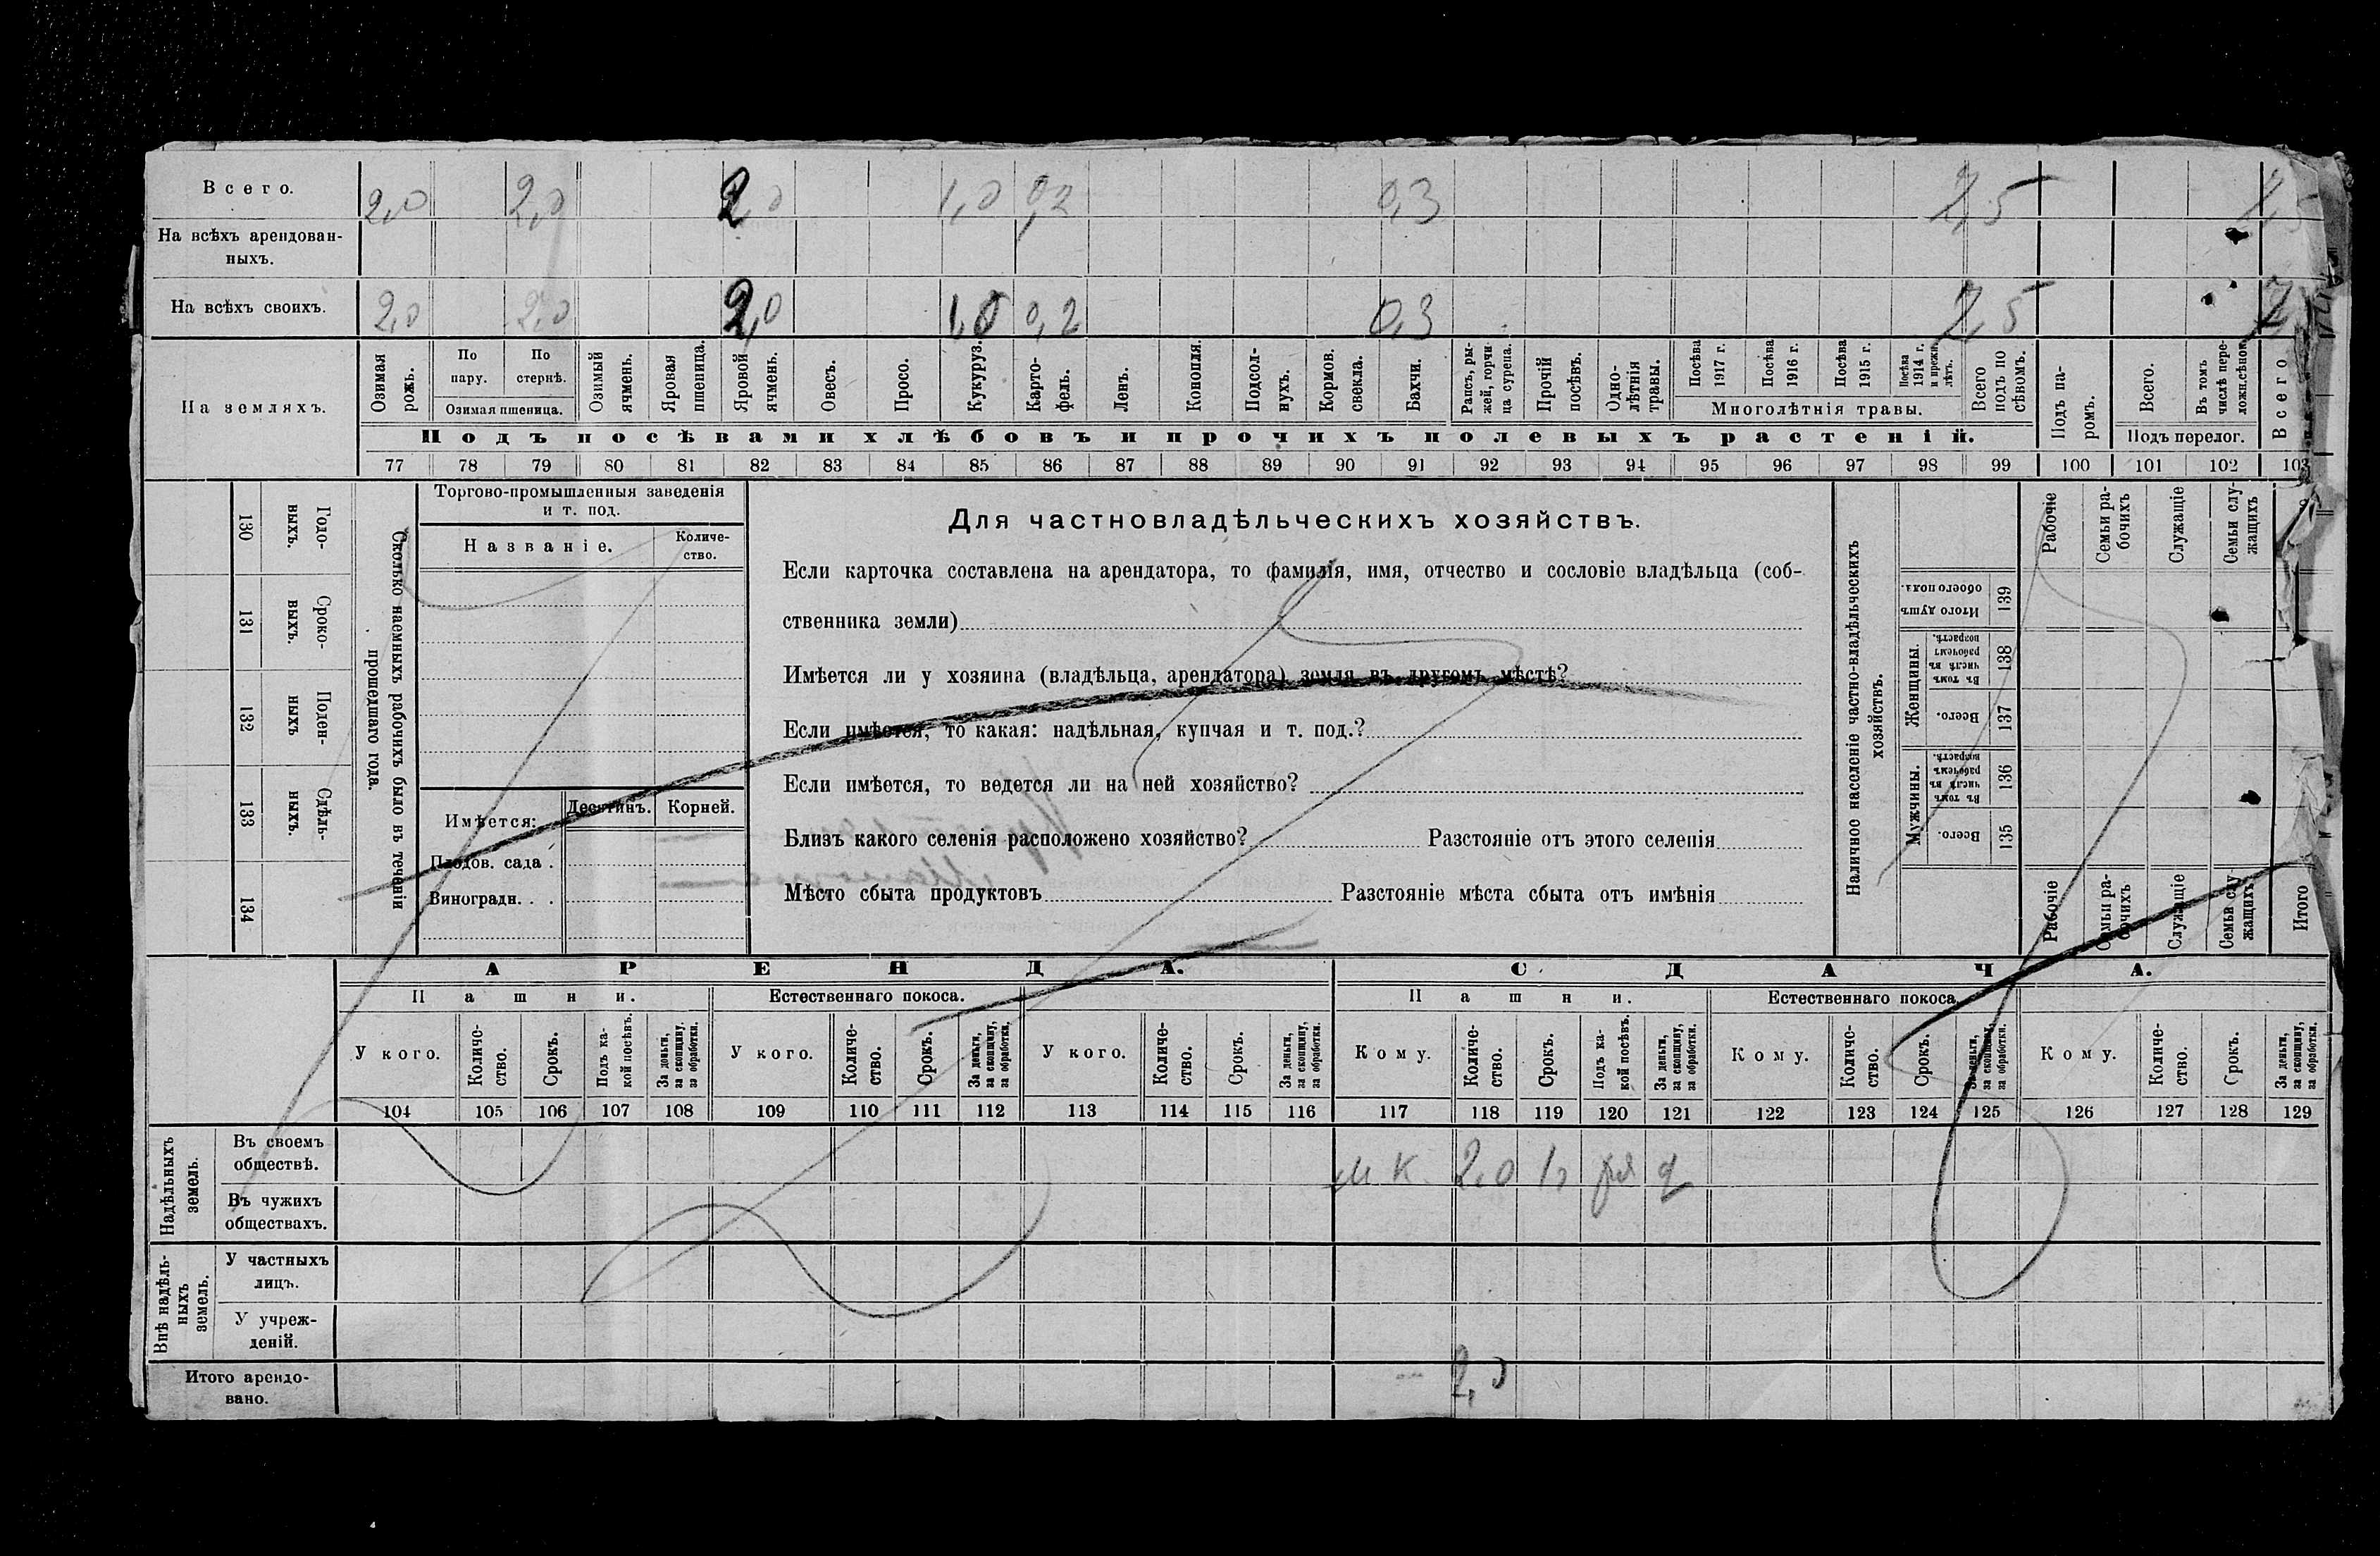 Всего. 2,0 2,0 2,0 1,0 0,2 0,3 7,5 7,5
На всѣхъ арендован-
ныхъ.
На всѣхъ своихъ. 2,0 2,0 2,0 1,0 0,2 0,3 7,5
На земляхъ.
Озимая рожь.
По пару.
По стернѣ.
Озимая пшеница.
Озимый ячмень.
Яровая пшеница.
Яровой ячмень.
Овесъ.
Просо.
Кукуруз.
Карто-
фель.
Ленъ.
Конопля.
Подсол-
нухъ.
Кормов. свекла.
Бахчи.
Рапсъ, ры-
жей, горчи
ца сурепа.
Прочій посѣвъ.
Одно-
лѣтнія
травы.
Посѣва 1917 г.
Посѣва 1916 г.
Посѣва 1915 г.
Посѣва 1914 г. и прежн. лѣтъ.
Многолѣтнія травы.
Всего подъ по
сѣвомъ.
Подъ па-
ромъ.
Всего.
Въ томъ числѣ пере-
ложн.сѣнок
Подъ перелог.
Всего
Подъ посѣвами хлѣбовъ и прочихъ полевыхъ растеній.
77 78 79 80 81 82 83 84 85 86 87 88 89 90 91 92 93 94 95 96 97 98 99 100 101 102 103
130 Годо-
выхъ.
131 Сроко-
выхъ.
132 Поден-
ныхъ
133 Сдѣль-
ныхъ.
134
Сколько наемныхъ рабочихъ было въ теченіи
прошедшаго года.
Торгово-промышленныя заведенія
и т. под.
Названіе.
Количе-
ство.
Имѣется:
Десятинъ. Корней.
Плодов. сада .
Виноградн. . .
Для частновладѣльческихъ хозяйствъ.
Если карточка составлена на арендатора, то фамилія, имя, отчество и сословіе владѣльца (соб-
ственника земли)
Имѣется ли у хозяина (владѣльца, арендатора) земля въ другомъ мѣстѣ?
Если имѣется, то какая: надѣльная, купчая и т. под.?
Если имѣется, то ведется ли на ней хозяйство?
Близъ какого селенія расположено хозяйство? Разстояніе отъ этого селенія
Мѣсто сбыта продуктовъ Разстояніе мѣста сбыта отъ имѣнія
Наличное населеніе частно-владѣльческихъ
хозяйствъ.
Итого душъ
обоего пола.
139
Женщины.
Въ томъ числѣ въ рабочемъ возрастѣ.
138
Всего.
137
Мужчины.
Въ томъ числѣ въ рабочемъ возрастѣ.
136
Всего.
135
Рабочіе
Семьи ра-
бочихъ
Служащіе
Семьи слу-
жащихъ
Рабочіе
Семьи ра-
бочихъ
Служащіе
Семьи слу
жащихъ
Итого
АРЕНДА. СДАЧА.
Пашни. Естественнаго покоса. Пашни. Естественнаго покоса.
У кого.
Количе-
ство.
Срокъ.
Подъ ка-
кой посѣвъ.
За деньги,
за скопщину,
за обработки.
У кого.
Количе-
ство.
Срокъ.
За деньги,
за скопщину,
за обработки.
У кого.
Количе-
ство.
Срокъ.
За деньги,
за скопщину,
за обработки.
Кому.
Количе-
ство.
Срокъ.
Подъ ка-
кой посѣвъ.
За деньги,
за скопщину,
за обработки.
Кому.
Количе-
ство.
Срокъ.
За деньги,
за скопщину,
за обработки.
Кому.
Количе-
ство.
Срокъ.
За деньги,
за скопщину,
за обработки.
104 105 106 107 108 109 110 111 112 113 114 115 116 117 118 119 120 121 122 123 124 125 126 127 128 129
Надѣльныхъ
земель.
Въ своемъ
обществѣ.
м к 2,0
Въ чужихъ
обществахъ.
Внѣ надѣль-
ныхъ
земель.
У частныхъ
лицъ.
У учреж-
деній.
Итого арендо-
вано.
2,0